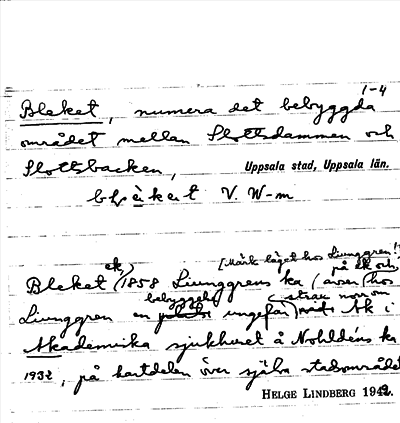 1-4
Bleket, numera det bebyggda
området mellan Slottsdammen och
Slottsbacken, Uppsala stad, Uppsala län.
V. W-m
[Märk läget hos Ljunggren!]
på ek och
Bleket ek, 1858 Ljunggrens ka (även hos
bebyggda strax norr om
Ljunggren en ungefär Ak i
Akademiska sjukhuset å Nohldéns ka
1932, på kartdelen över själva stadsområdet
HELGE LINDBERG 1942.